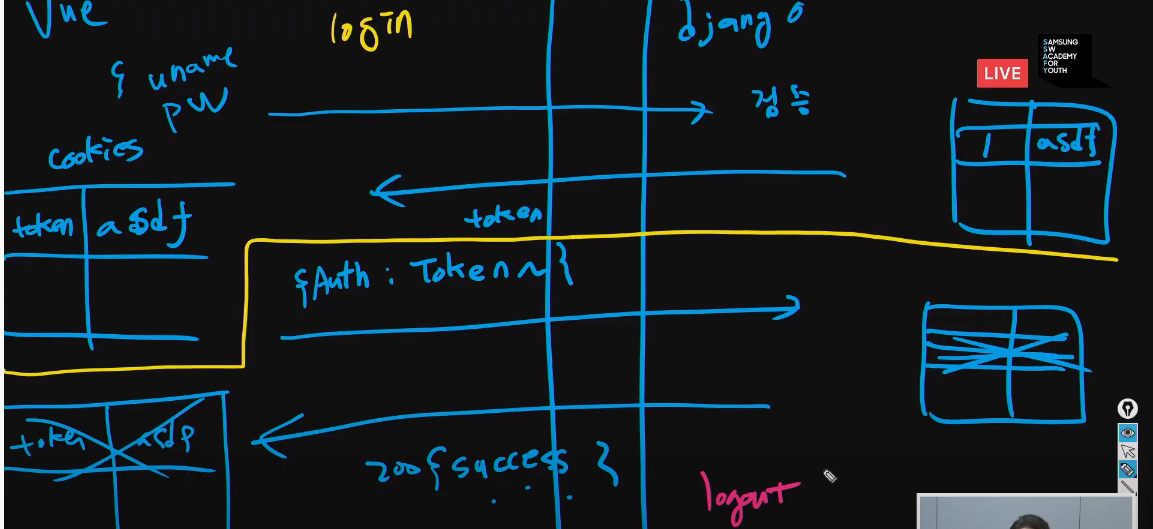 Vue
login
django
SAMSUNG
SW
ACADEMY
FOR
YOUTH
LIVE
{ uname
pw
검증
cookies
1 asdf
token asdf
token
{Auth : Token ~ }
token asdf
200 { success }
...
logout